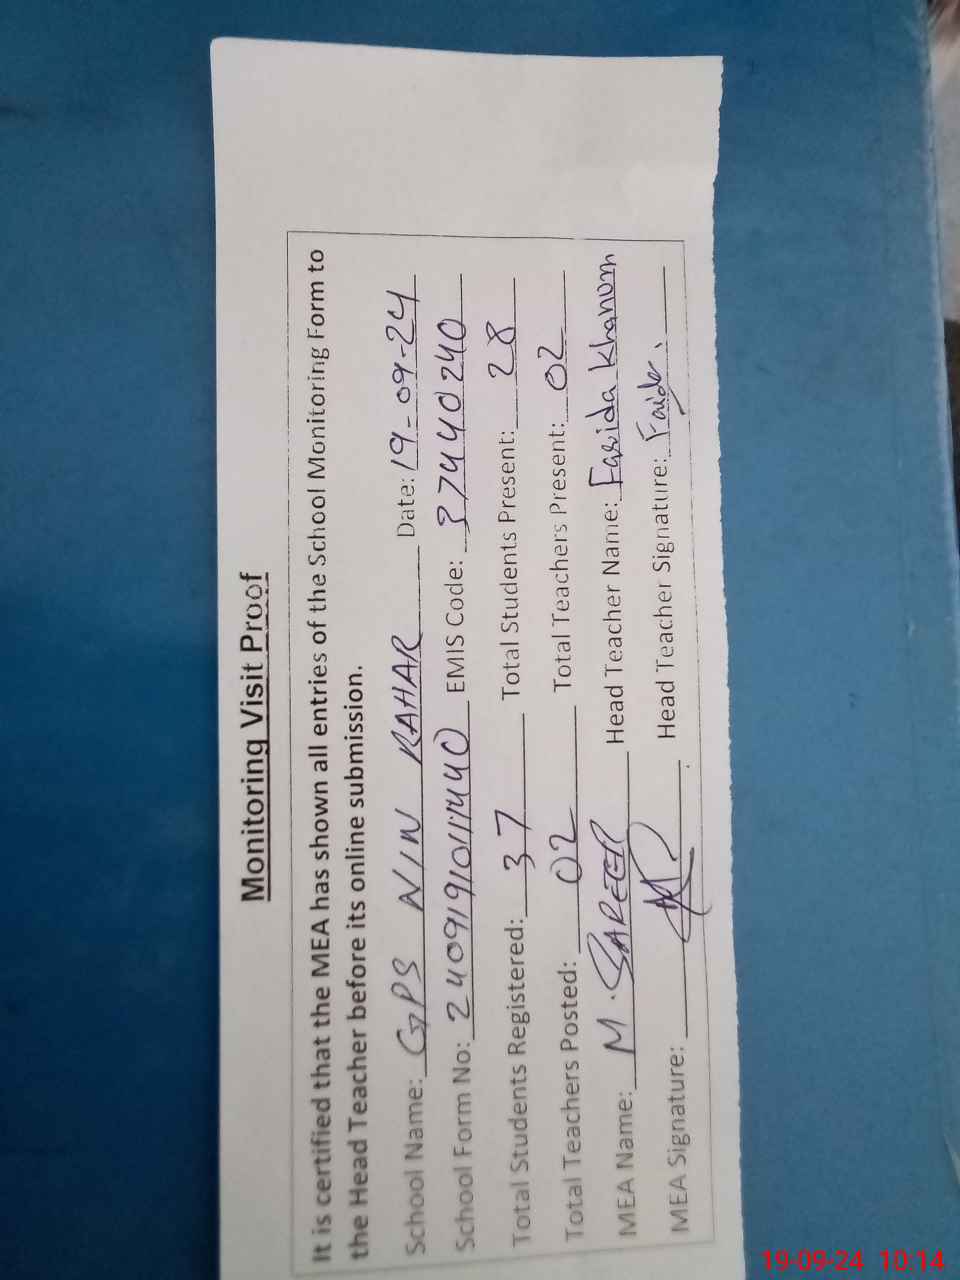 Monitoring Visit Proof
It is certified that the MEA has shown all entries of the School Monitoring Form to
the Head Teacher before its online submission.
School Name: GPS NIN RAHAR Date: 19-09-24
School Form No: EMIS Code: 37440240
Total Students Registered: 37 Total Students Present: 28
Total Teachers Posted: 02 Total Teachers Present: 02
MEA Name: M. SAREER Head Teacher Name: Farida Khanum
MEA Signature: Head Teacher Signature:
19-09-24 10:14